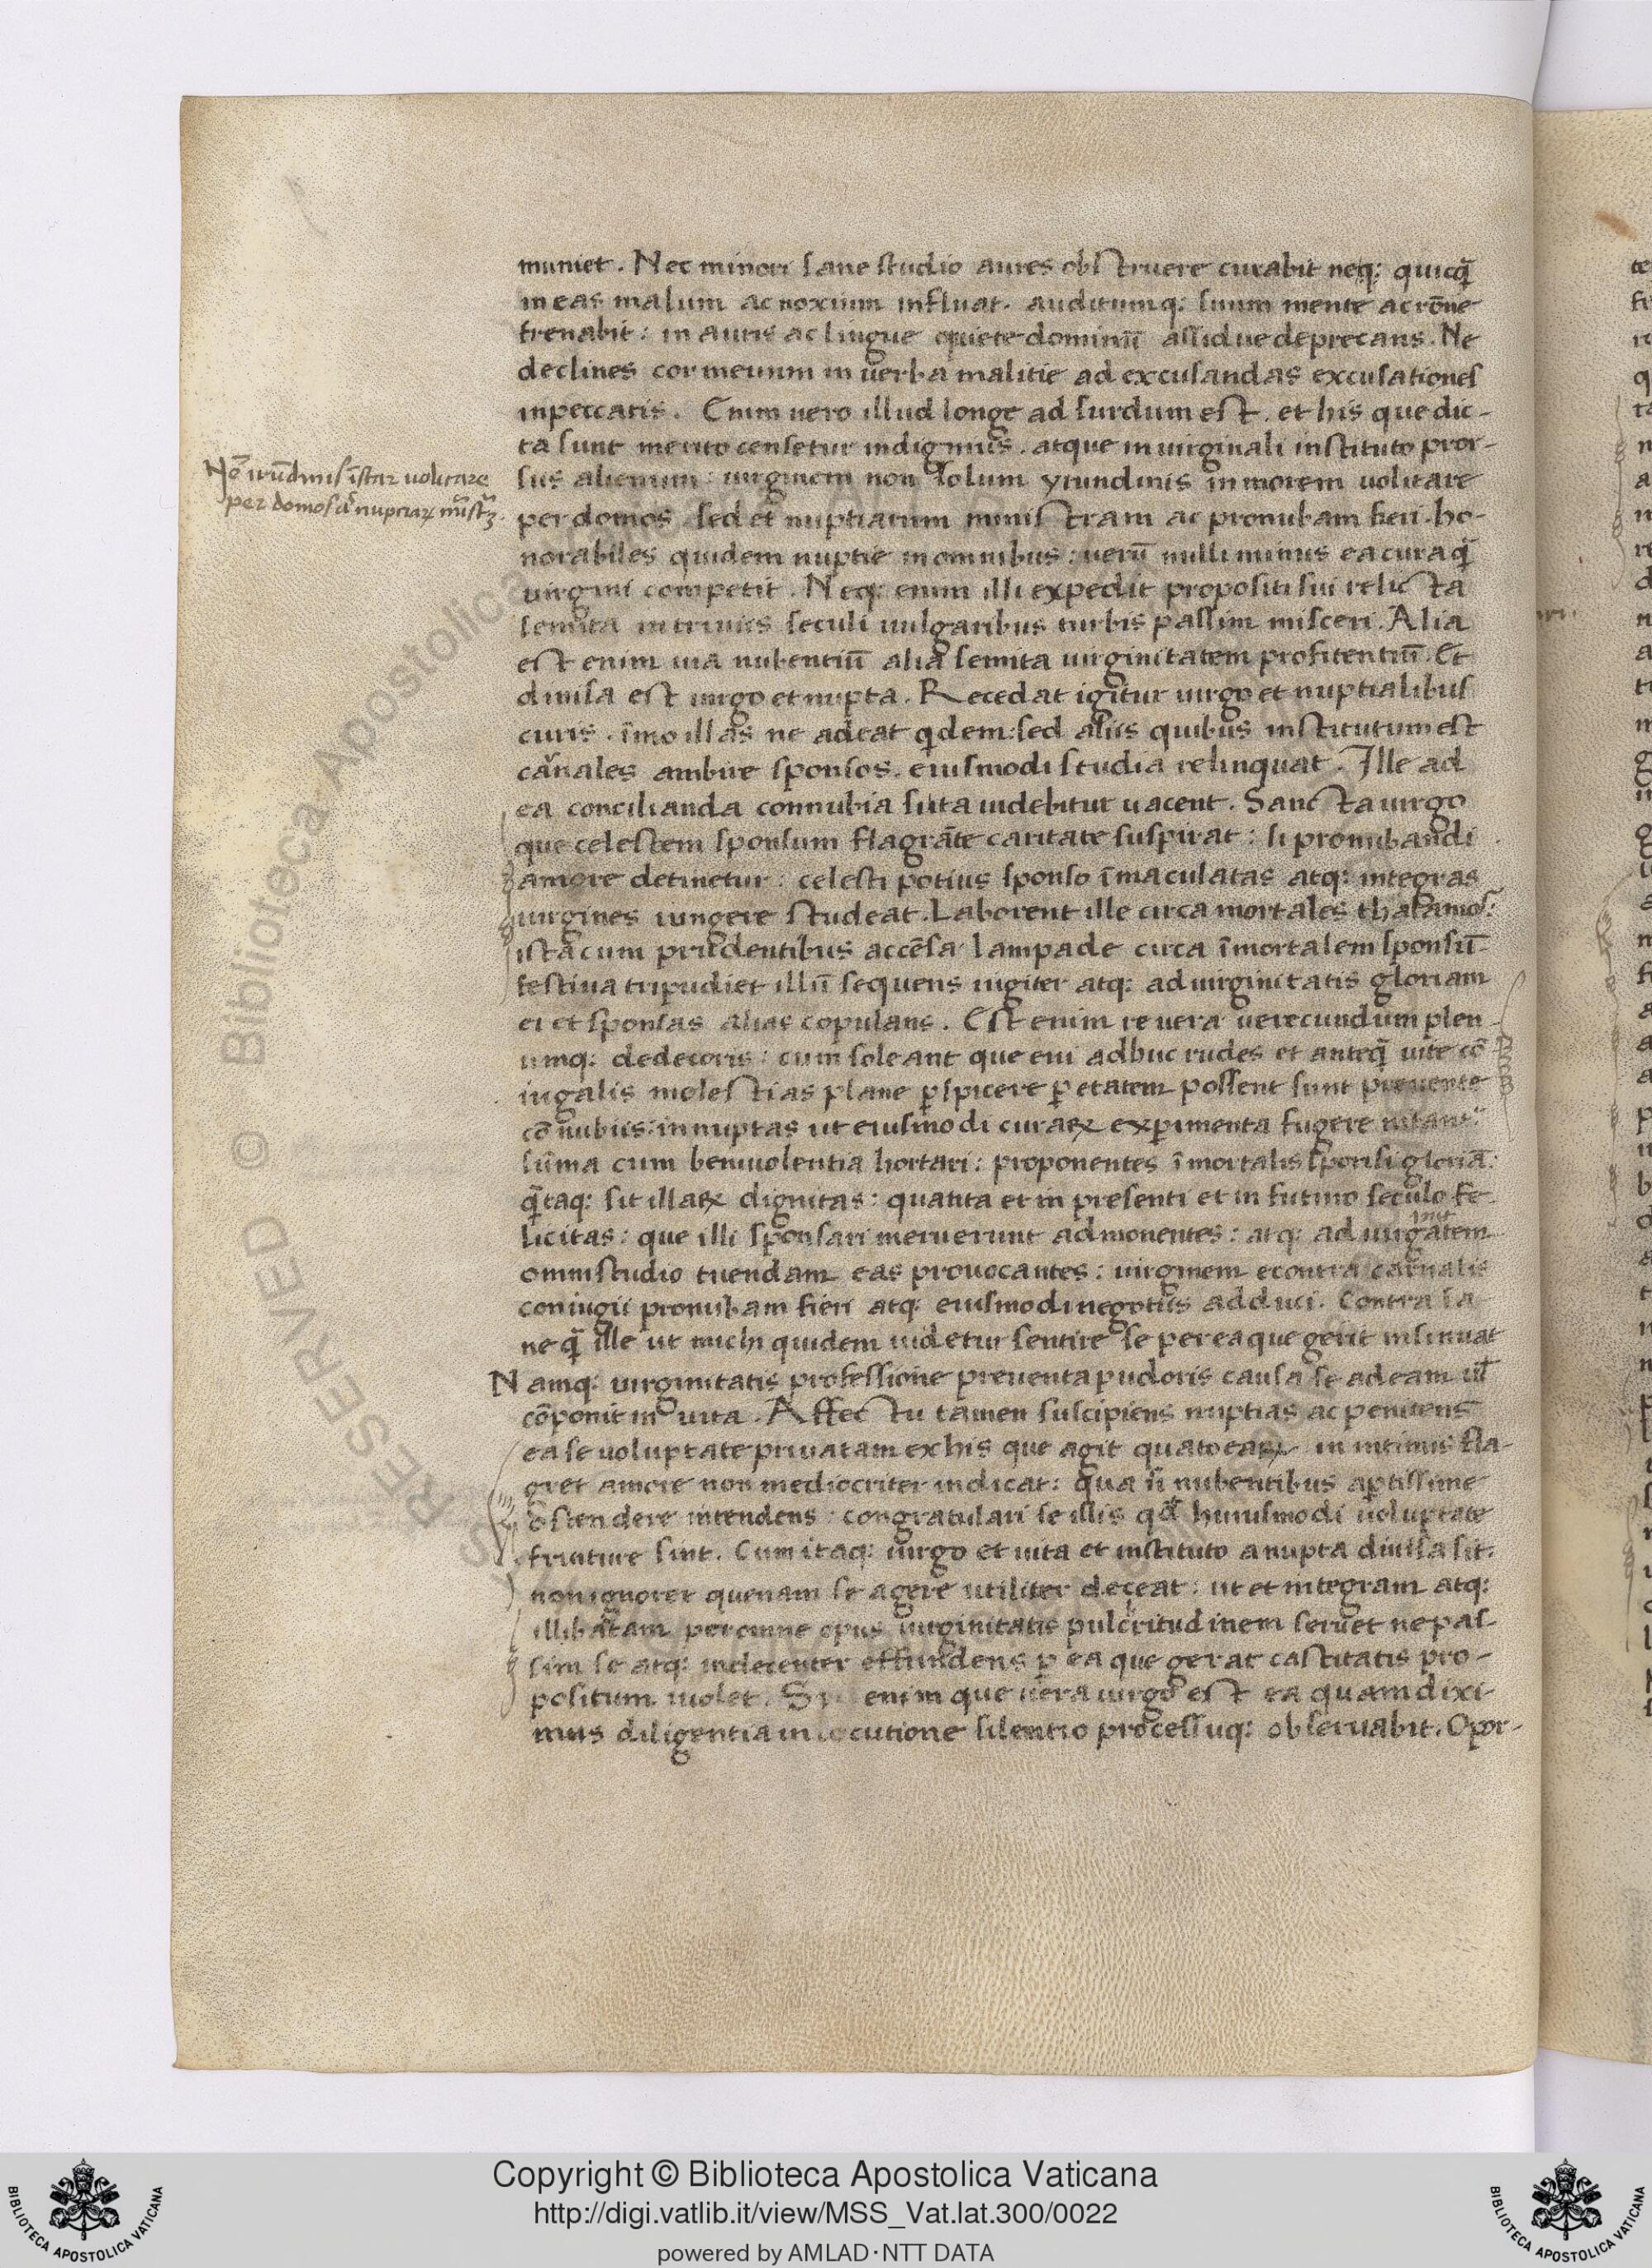 muniet. Nec minori sane studio aures obstruere curabit neq: quicq̄
in eas malum ac noxium influat. auditumq: suum mente ac rōne
frenabit: in auris ac lingue quiete dominū assidue deprecans. Ne
declines cor meum in verba malitie ad excusandas excusationes
in peccatis. Enim uero illud longe ad surdum est. et his que dic-
ta sunt merito censetur indignius. atque in uirginali instituto pror-
sus alienum: uirginem non solum yrundinis in morem uolitare
per domos sed et nuptiarum ministram ac pronubam fieri. ho-
norabiles quidem nuptie in omnibus: uerū nulli minus ea cura q̄
uirgini competit. Neq: enim illi expedit propositi sui relicta
semita in triuiis seculi uulgaribus turbis passim misceri. Alia
est enim uia nubentiū alia semita uirginitatem profitentiū. Et
diuisa est uirgo et nupta. Recedat igitur uirgo et nuptialibus
curis. īmo illas ne adeat qidem: sed aliis quibus institutum est
carnales ambire sponsos. eiusmodi studia relinquat. Ille ad
ea concilianda connubia si ita uidebitur uacent. Sancta uirgo
que celestem sponsum flagrāte caritate suspirat: si pronubandi
amore detinetur: celesti potius sponso īmaculatas atq: integras
uirgines iungere studeat. Laborent ille circa mortales thalamos:
ista cum prudentibus accēsa lampade circa īmortalem sponsū
festiua tripudiet illū sequens iugiter atq: ad uirginitatis gloriam
ei et sponsas alias copulans. Est enim re uera uerecundum plen
umq: dedecoris: cum soleant que eui adhuc rudes et anteq̄ uite cō
iugalis molestias plane p̱spicere p̱ etatem possent sunt preuente
cōnubiis: innuptas ut eiusmodi curaꝝ exp̱imenta fugere
sūma cum beniuolentia hortari: proponentes īmortalis sponsi gloriā:
q̄taq: sit illaꝝ dignitas: quanta et in presenti et in futuro seculo fe
licitas: que illi sponsari meruerunt admonentes: atq: ad uirginitatem
omni studio tuendam eas prouocantes: uirginem econtra carnalis
coniugii pronubam fieri atq: eiusmodi negotiis adduci. Contra sa
ne q̄ ille ut michi quidem uidetur sentire se per ea que gerit insinuat
Namq: uirginitatis professione preuenta pudoris causa se ad eam
cōponit in uita. Affectu tamen suscipiens nuptias ac penitens
ea se uoluptate priuatam ex his que agit quāto eaꝝ in intimis fla-
gret amore non mediocriter indicat: qua nubentibus aptissime
ostendere intendens: congratulari se illis qđ huiusmodi uoluptate
friuture sint. Cum itaq: uirgo et uita et instituto a nupta diuisa sit.
non ignoret quenam se agere utiliter deceat: ut et integram atq:
illibatam per omne opus uirginitatis pulcritudinem seruet ne pas-
sim se atq: indecenter effundens p̱ ea que gerat castitatis pro-
positum uiolet. enim que uera uirgo est ea quam dixi-
mus diligentia in locutione silentio processuq: obseruabit. Opor-
Nō irūdinis īstar uolitare
per domos